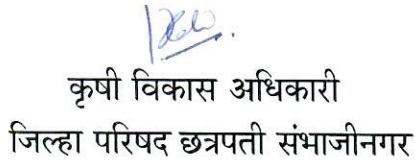 कृषी विकास अधिकारी
जिल्हा परिषद छत्रपती संभाजीनगर